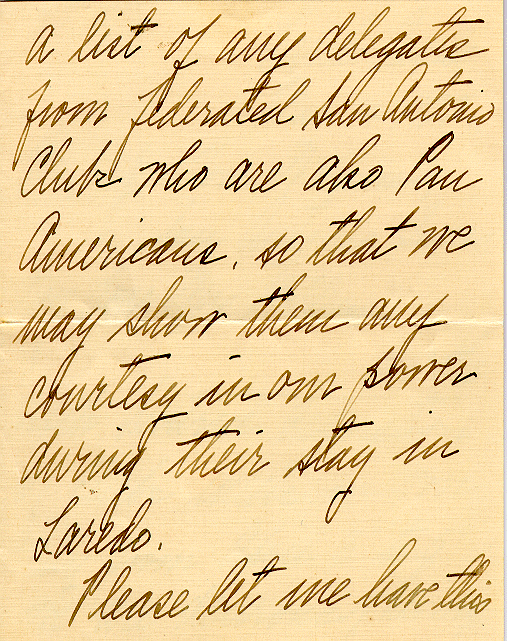 a list of any delegates
from federated San Antonio
Clubs who are also Pan
Americans, so that we
may show them any
courtesy in our power
during their stay in
Laredo.
Please let me have this